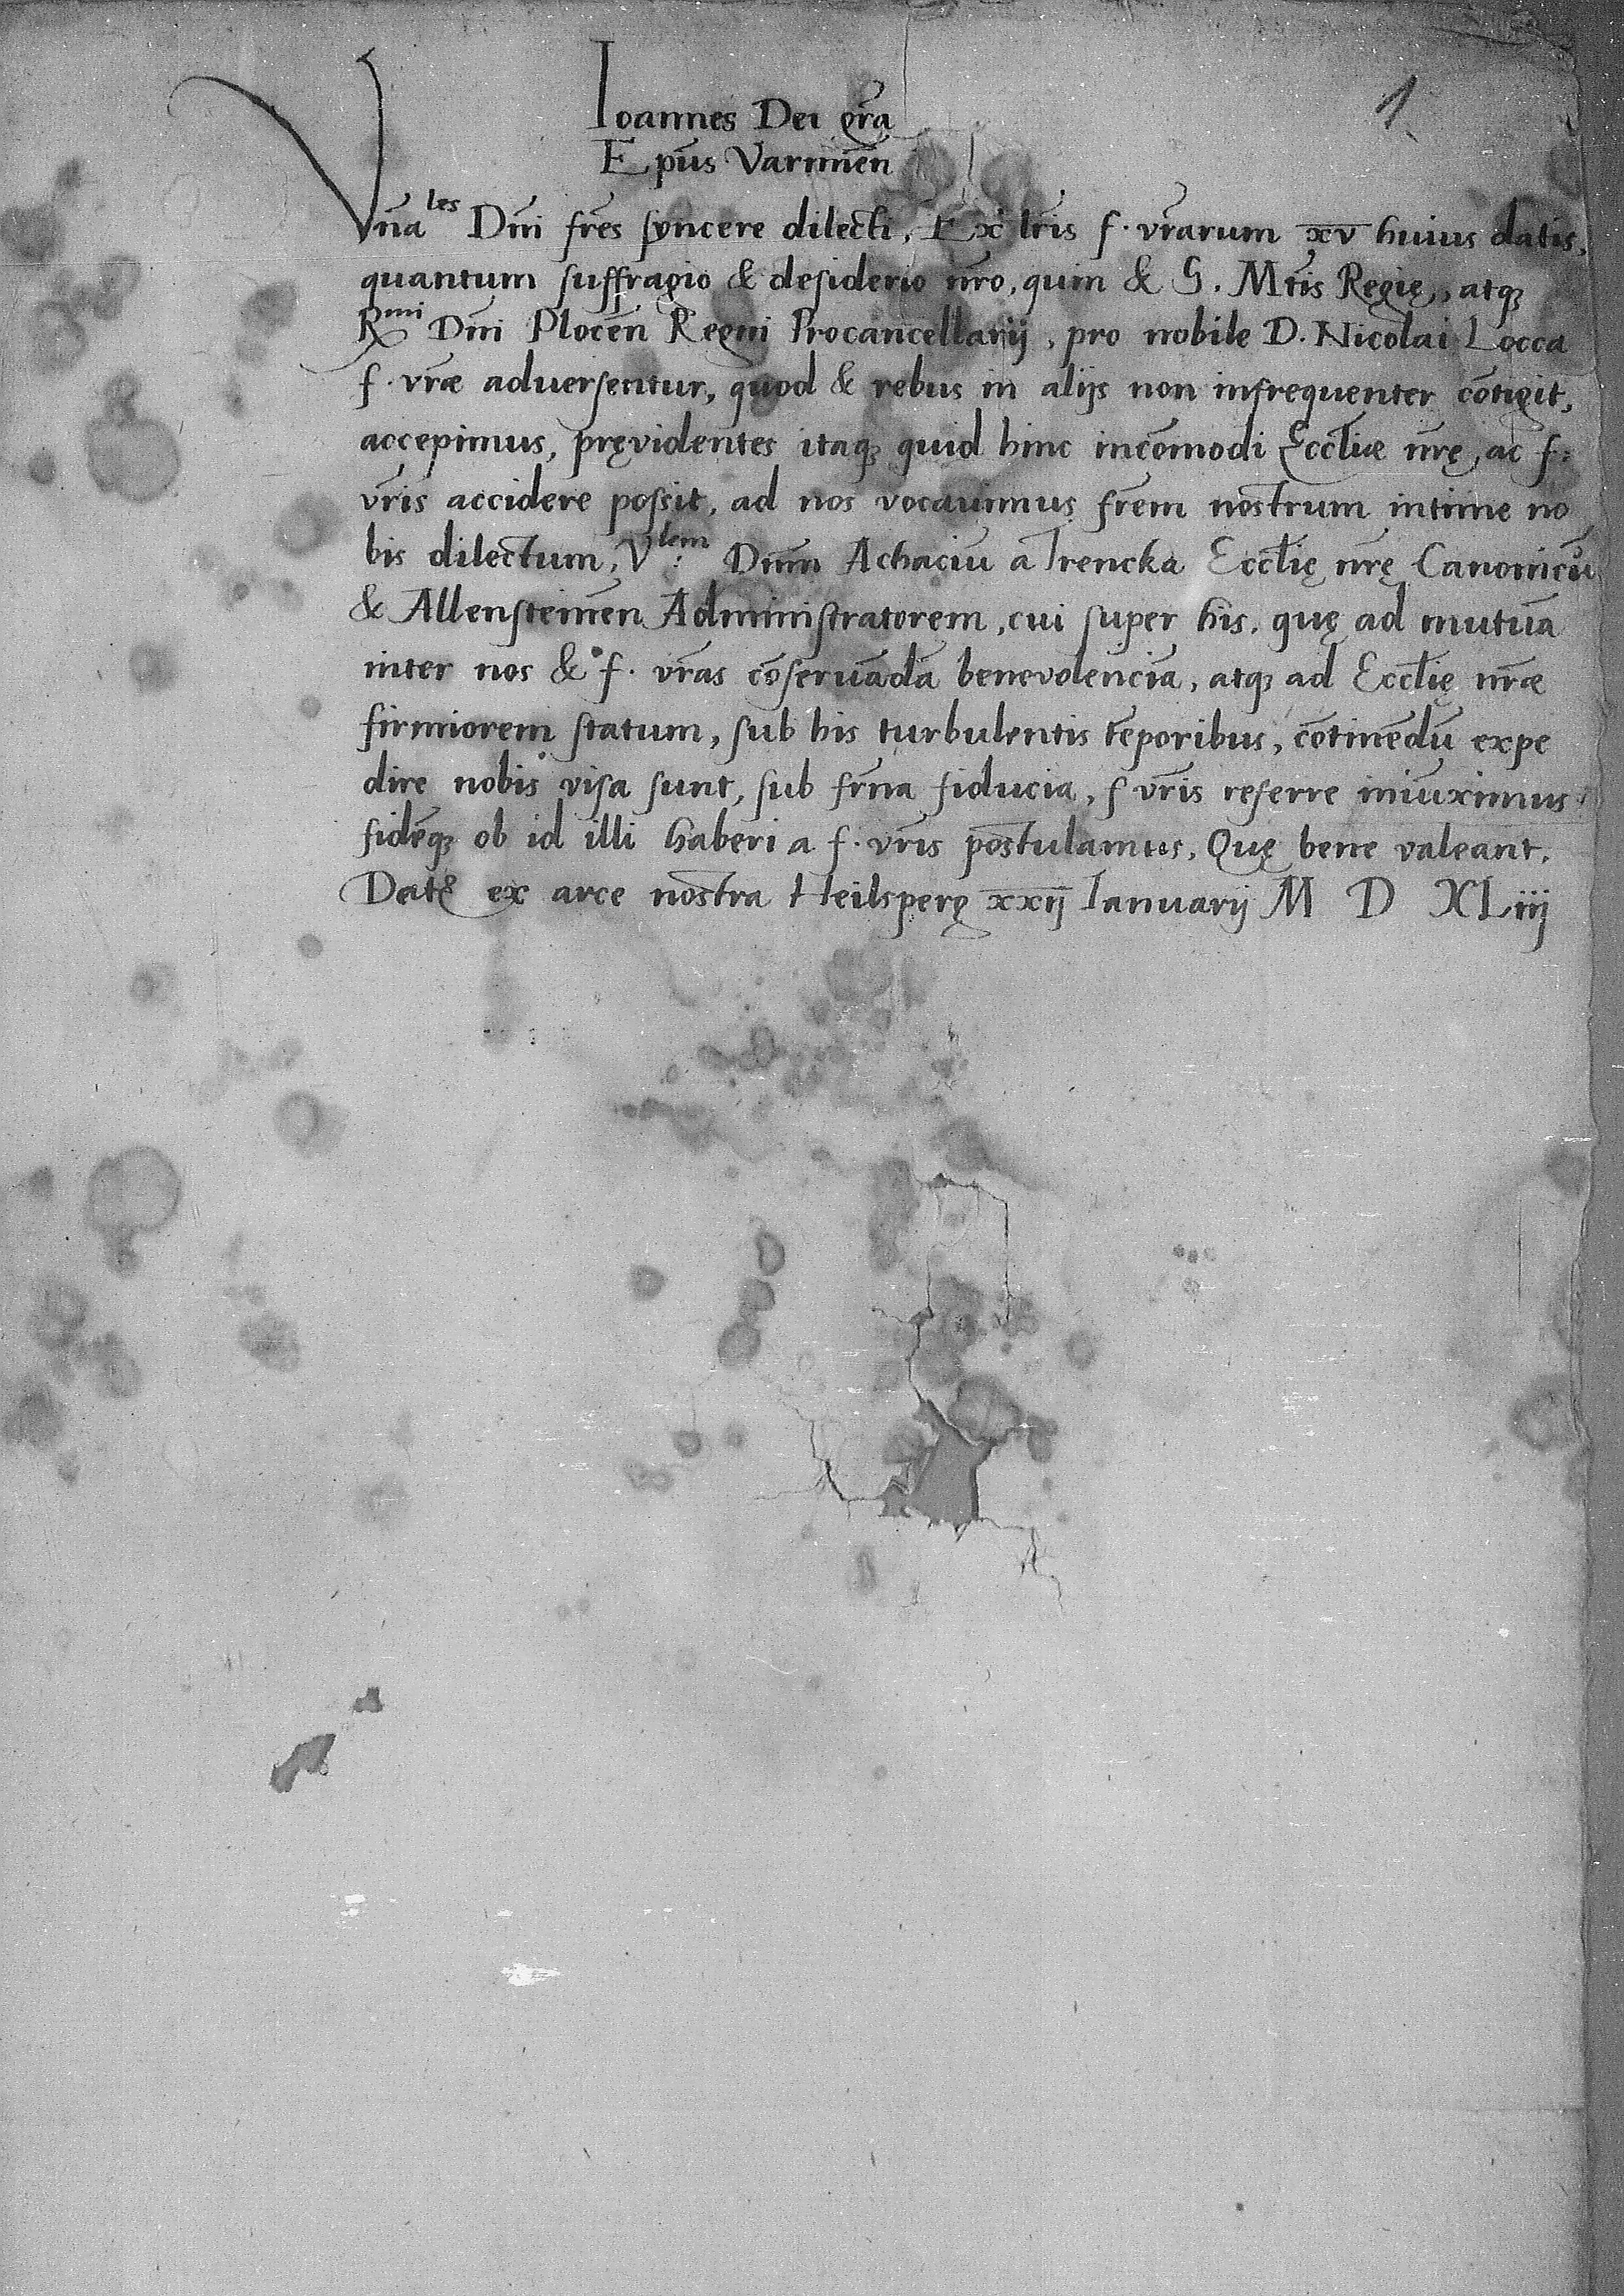 1
Ioannes Dei gr̃a
Ep̃us Varmień
Vñales Dñi fr̃es syncere dilecti, Ex lr̃is f. vr̃arum xv huius datis,
quantum suffragio & desiderio nr̃o, quin & S. Mt̃is Regię, atq₃
Rmi Dñi Ploceñ Regni Procancellarij, pro nobile D. Nicolai Locca
f. vr̃æ aduersentur, quod & rebus in alijs non infrequenter cõtigit,
accepimus, pręvidentes itaq₃ quid hinc incõmodi Eccl̃iæ nr̃ę, ac f:
vr̃is accidere possit, ad nos vocauimus fr̃em nostrum intime no
bis dilectum, Vlem: Dñm Achaciũ a Trencka Eccl̃ię nr̃ę Canonicũ
& Allensteineñ Administratorem, cui super his, quę ad mutuã
inter nos & f. vr̃as cõseruãdã benevolenciã, atq₃ ad Eccl̃ię nr̃æ
firmiorem statum, sub his turbulentis tẽporibus, cõtinẽdũ expe
dire nobis visa sunt, sub fr̃na fiducia, f vr̃is referre iniũximus
fidẽq₃ ob id illi haberi a f. vr̃is postulamus, Quę bene valeant.
Datę ex arce nostra Heilsperg xxij Ianuarij M D XLiij